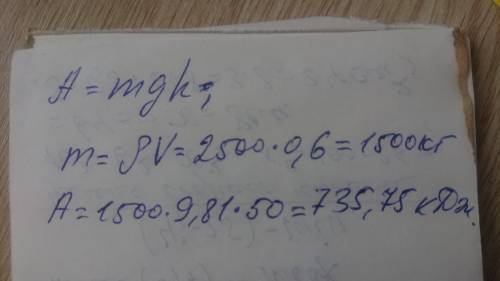 A = mgh;
m = ρV = 2500·0,6 = 1500кг
A = 1500·9,81·50 = 735,75 кДж.